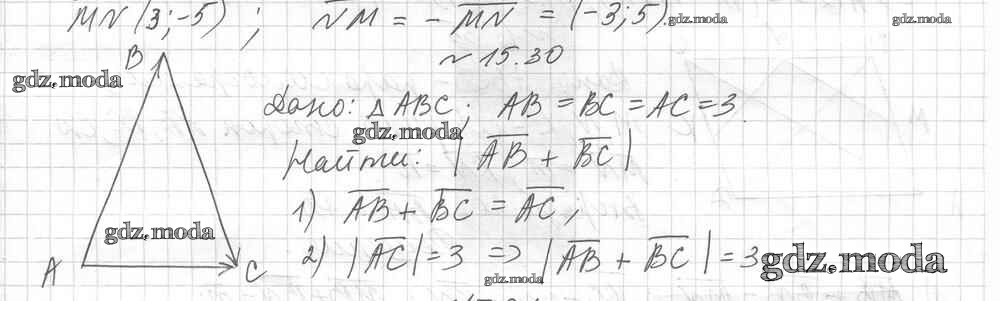 MN (3; -5) ; NM = - MN = (-3; 5). gdz.moda gdz.moda
N 15.30
B
gdz.moda
Дано: △ ABC; AB = BC = AC = 3.
gdz.moda
Найти: |AB + BC|
1) AB + BC = AC;
gdz.moda
2) |AC| = 3 => |AB + BC| = 3 gdz.moda
A C
gdz.moda